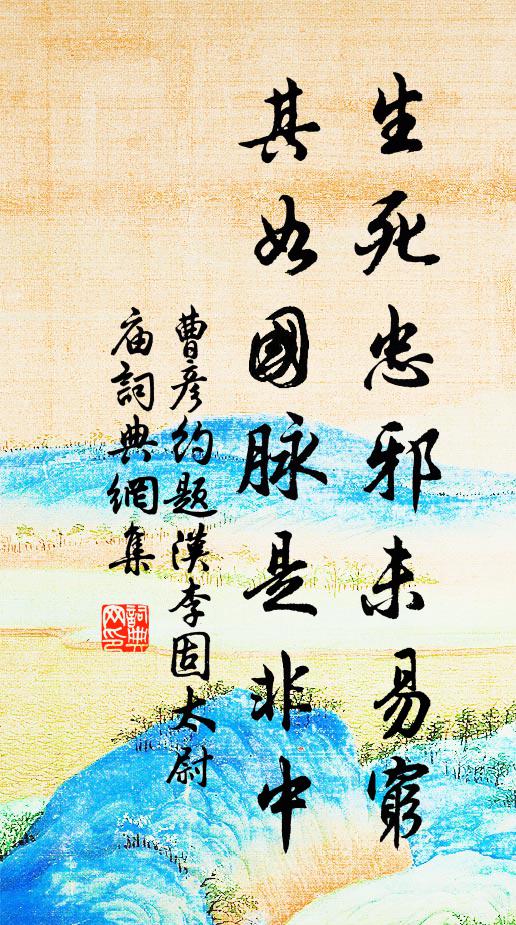 生死忠邪未易窮
其如國脉是非中
曹彦约题漢李固太尉
庙詞典網集
詞典网印